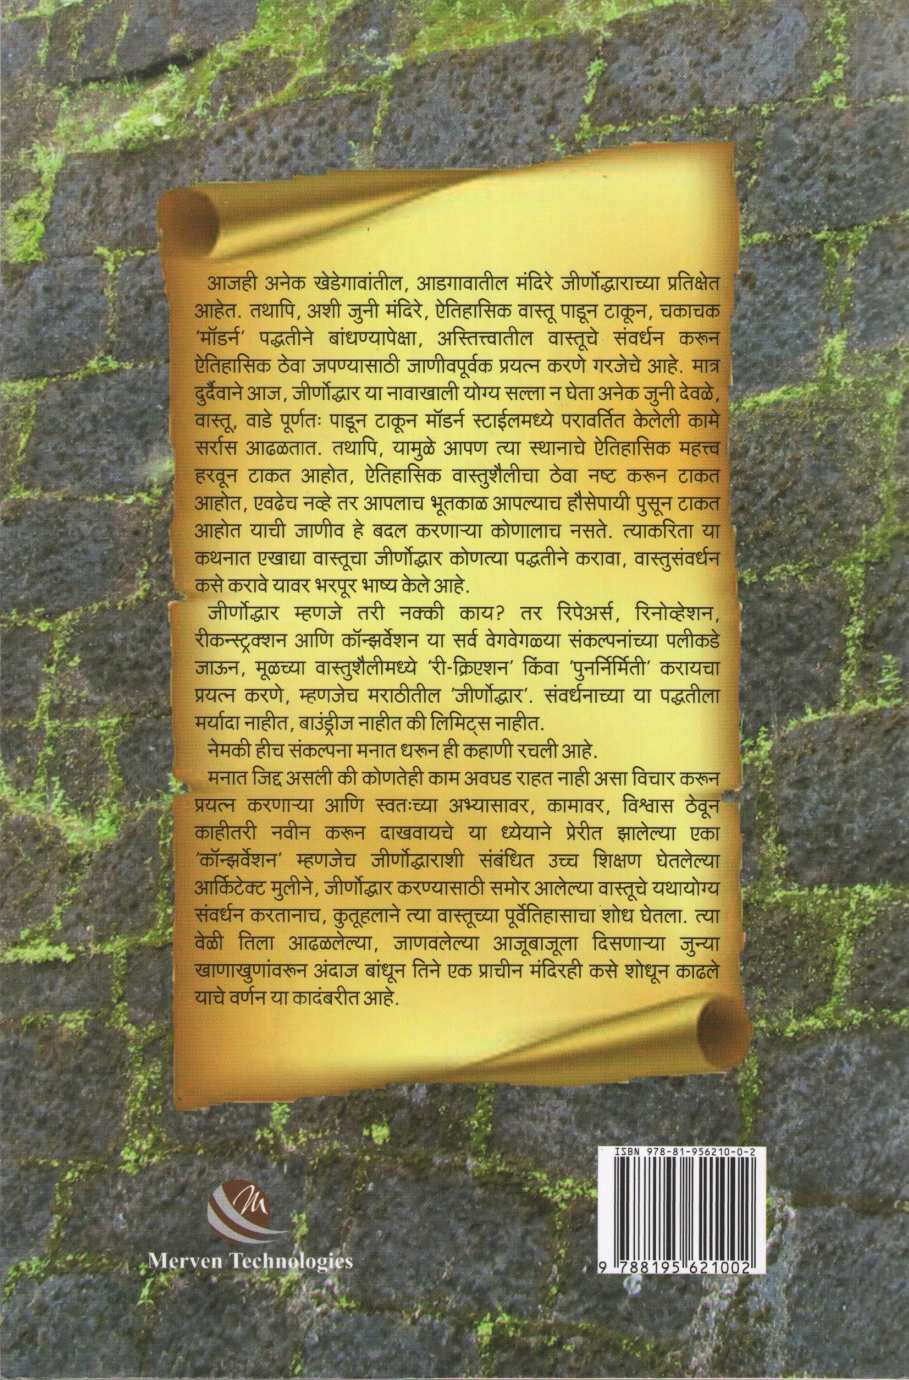 आजही अनेक खेडेगावांतील, आडगावातील मंदिरे जीर्णोद्धाराच्या प्रतिक्षेत
आहेत. तथापि, अशी जुनी मंदिरे, ऐतिहासिक वास्तू पाडून टाकून, चकाचक
'मॉडर्न' पद्धतीने बांधण्यापेक्षा, अस्तित्त्वातील वास्तूचे संवर्धन करून
ऐतिहासिक ठेवा जपण्यासाठी जाणीवपूर्वक प्रयत्न करणे गरजेचे आहे. मात्र
दुर्दैवाने आज, जीर्णोद्धार या नावाखाली योग्य सल्ला न घेता अनेक जुनी देवळे,
वास्तू, वाडे पूर्णतः पाडून टाकून मॉडर्न स्टाईलमध्ये परावर्तित केलेली कामे
सर्रास आढळतात. तथापि, यामुळे आपण त्या स्थानाचे ऐतिहासिक महत्त्व
हरवून टाकत आहोत, ऐतिहासिक वास्तुशैलीचा ठेवा नष्ट करून टाकत
आहोत, एवढेच नव्हे तर आपलाच भूतकाळ आपल्याच हौसेपायी पुसून टाकत
आहोत याची जाणीव हे बदल करणाऱ्या कोणालाच नसते. त्याकरिता या
कथनात एखाद्या वास्तूचा जीर्णोद्धार कोणत्या पद्धतीने करावा, वास्तुसंवर्धन
कसे करावे यावर भरपूर भाष्य केले आहे.
जीर्णोद्धार म्हणजे तरी नक्की काय? तर रिपेअर्स, रिनोव्हेशन,
रीकन्स्ट्रक्शन आणि कॉन्झर्वेशन या सर्व वेगवेगळ्या संकल्पनांच्या पलीकडे
जाऊन, मूळच्या वास्तुशैलीमध्ये 'री-क्रिएशन' किंवा 'पुनर्निर्मिती' करायचा
प्रयत्न करणे, म्हणजेच मराठीतील 'जीर्णोद्धार'. संवर्धनाच्या या पद्धतीला
मर्यादा नाहीत, बाउंड्रीज नाहीत की लिमिट्स नाहीत.
नेमकी हीच संकल्पना मनात धरून ही कहाणी रचली आहे.
मनात जिद्द असली की कोणतेही काम अवघड राहत नाही असा विचार करून
प्रयत्न करणाऱ्या आणि स्वतःच्या अभ्यासावर, कामावर, विश्वास ठेवून
काहीतरी नवीन करून दाखवायचे या ध्येयाने प्रेरीत झालेल्या एका
'कॉन्झर्वेशन' म्हणजेच जीर्णोद्धाराशी संबंधित उच्च शिक्षण घेतलेल्या
आर्किटेक्ट मुलीने, जीर्णोद्धार करण्यासाठी समोर आलेल्या वास्तूचे यथायोग्य
संवर्धन करतानाच, कुतूहलाने त्या वास्तूच्या पूर्वेतिहासाचा शोध घेतला. त्या
वेळी तिला आढळलेल्या, जाणवलेल्या आजूबाजूला दिसणाऱ्या जुन्या
खाणाखुणांवरून अंदाज बांधून तिने एक प्राचीन मंदिरही कसे शोधून काढले
याचे वर्णन या कादंबरीत आहे.
ISBN 978-81-956210-0-2
9 788195 621002
M
Merven Technologies